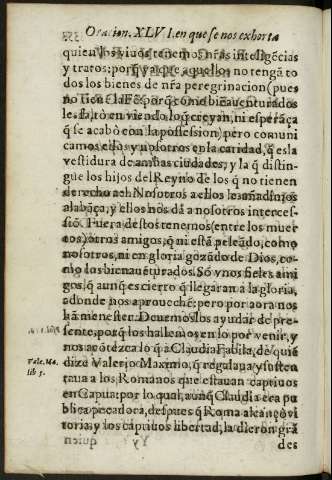 Oracion. XLVI. en que se nos exhorta
quien los viuos tenemos nr̃as inteligẽcias
y tratos: porq̃ ya que aquellos no tengã to
dos los bienes de nr̃a peregrinacion (pues
no tienẽ la Fè, porq̃ como bienauenturados
les faltò en viendo lo q̃ creyan, ni esperãça
q̃ se acabò con la possession) pero comuni
camos ellos y nosotros en la caridad, q̃ es la
vestidura de ambas ciudades, y la q̃ distin-
gue los hijos del Reyno de los q̃ no tienen
derecho a el: Nosotros a ellos les añadimos
alabãça, y ellos nos dã a nosotros interces-
siõ. Fuera destos tenemos (entre los muer
tos) otros amigos, q̃ ni estã peleãdo, como
nosotros, ni en gloria gozãdo de Dios, co-
mo los bienauẽturados. Sõ vnos fieles ami
gos, q̃ aunq̃ es cierto q̃ llegaran a la gloria,
adonde nos aprouechẽ: pero por aora nos
hã menester. Deuemoslos ayudar de pre-
sente, porq̃ los hallemos en lo por venir, y
nos acõtezca lo q̃ a Claudia Fabula, de quiẽ
dize Valerio Maximo, q̃ regalaua y susten
Vale. Ma.
lib 5.
taua a los Romanos que estauan captiuos
en Capua: por lo qual, aunq̃ Claudia era pu
blica pecadora, despues q̃ Roma alcançò vi
toria, y los captiuos libertad, la dieron grã
des